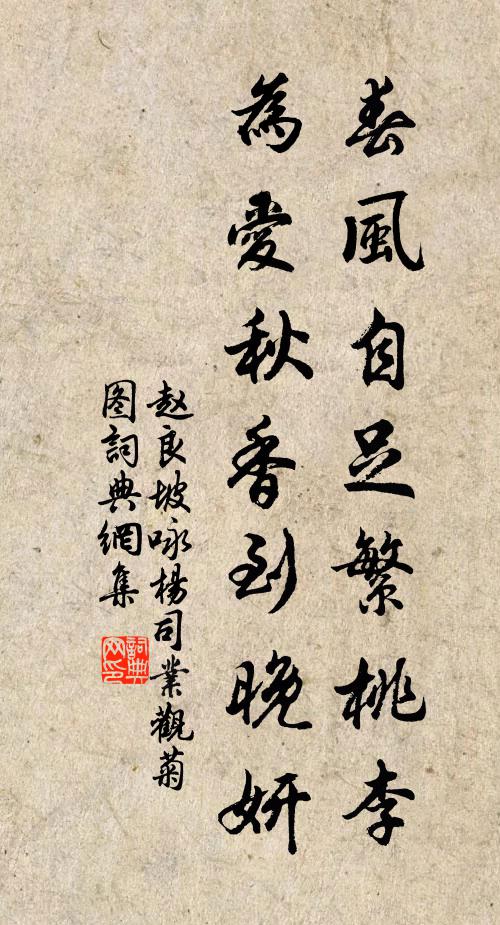 春風自足繁桃李
為愛秋香到晚妍
赵良坡咏楊司業觀菊
图詞典網集
詞典
网印